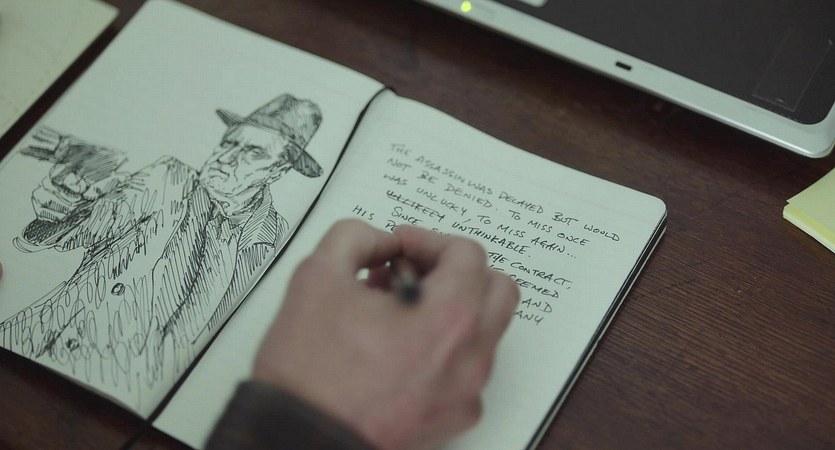 THE ASSASSIN WAS DELAYED BUT WOULD
NOT BE DENIED. TO MISS ONCE
WAS UNLUCKY, TO MISS AGAIN...
UNTHINKABLE.
SINCE
HIS THE CONTRACT,
SEEMED
AND
ANY